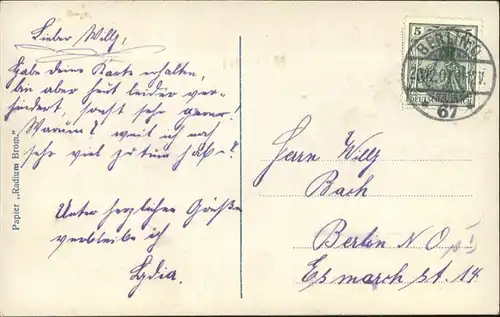 Lieber Willy,
Habe deine Karte erhalten,
bin aber heut leider ver-
hindert, sonst sehr gerne!
Warum? weil ich noch
sehr viel zu tun hab?
Unter herzlichen Grüßen
verbleibe ich
Lydia.
Papier „Radium Brom“
5 5
BERLIN
67
Herrn Willy
Bach
Berlin N O
Esmarch st. 14.